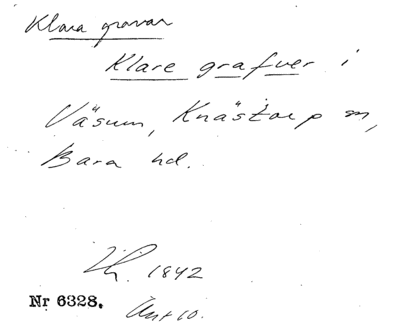 Klara gravar
Klare grafver i
Väsum, Knästorp sn,
Bara hd.
Th. 1842
Nr 6328.
Ant 10.